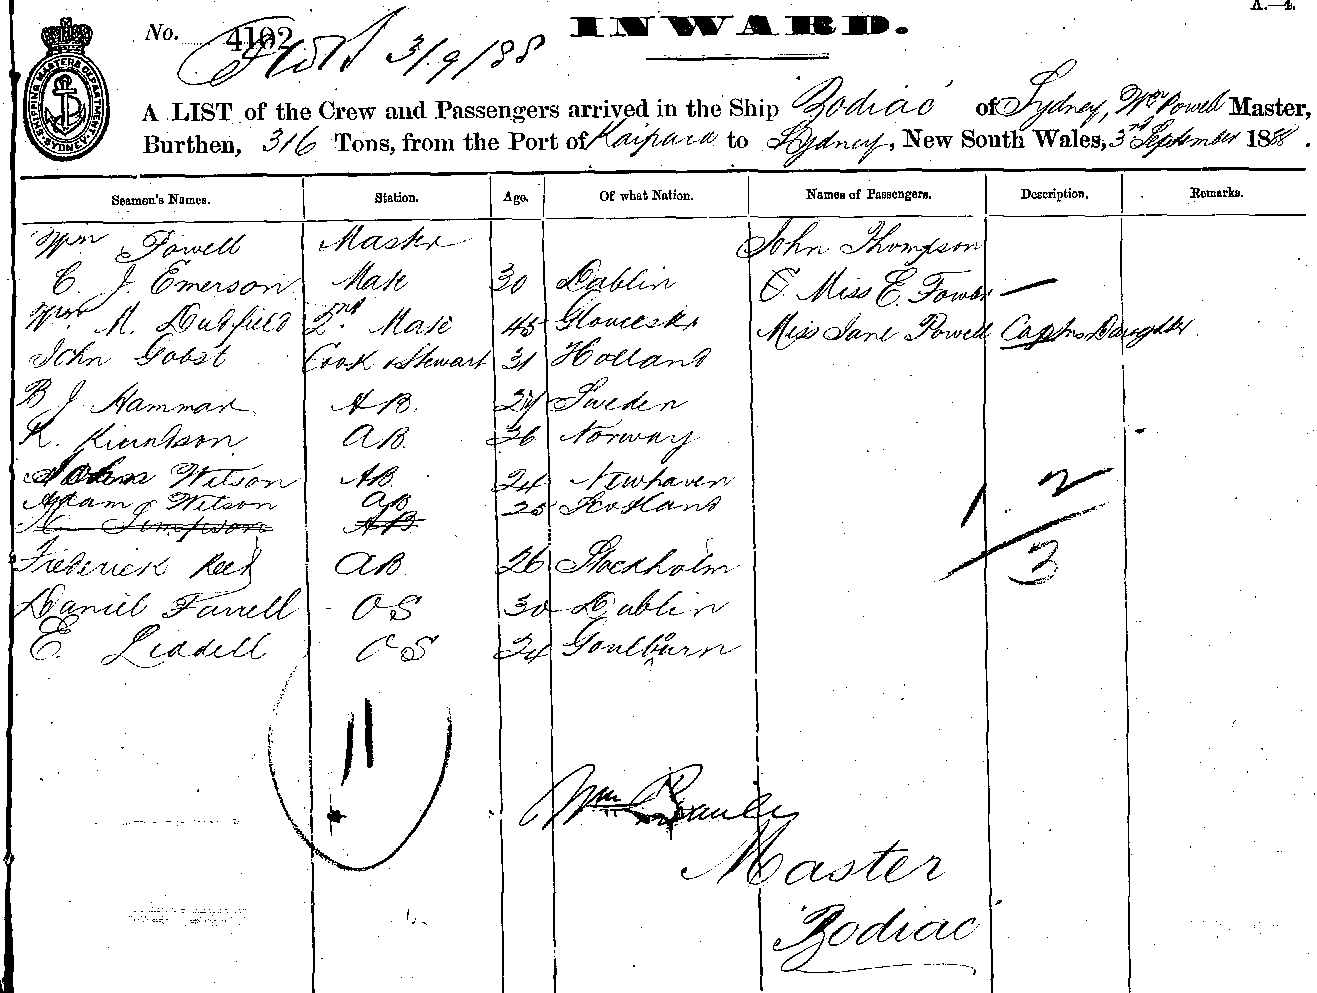 A.—4.
No. 4102 INWARD.
3/9/88
SHIPPING MASTERS DEPARTMENT SYDNEY
A LIST of the Crew and Passengers arrived in the Ship Zodiac of Sydney, Wm Powell Master,
Burthen, 316 Tons, from the Port of Kaipara to Sydney, New South Wales, 3rd September 1888.
Seamen's Names. Station. Age. Of what Nation. Names of Passengers. Description. Remarks.
Wm Powell Master John Thompson
C. J. Emerson Mate 30 Dublin Miss E. —
Wm M. Dudfield 2nd Mate 45 Gloucester Miss Jane Powell Captns Daughter
John Gobst Cook & Stewart 31 Holland
B J Hammar A B. 27 Sweden
K. Kundson AB. 26 Norway
John Wilson AB 24 Newhaven
Adam Wilson AB 25 Scotland
Simpson AB
Frederick AB 26 Stockholm
Daniel Farrell OS 30 Dublin
E. Liddell OS 24 Goulburn
1 2
3
11
Wm
Master
Zodiac